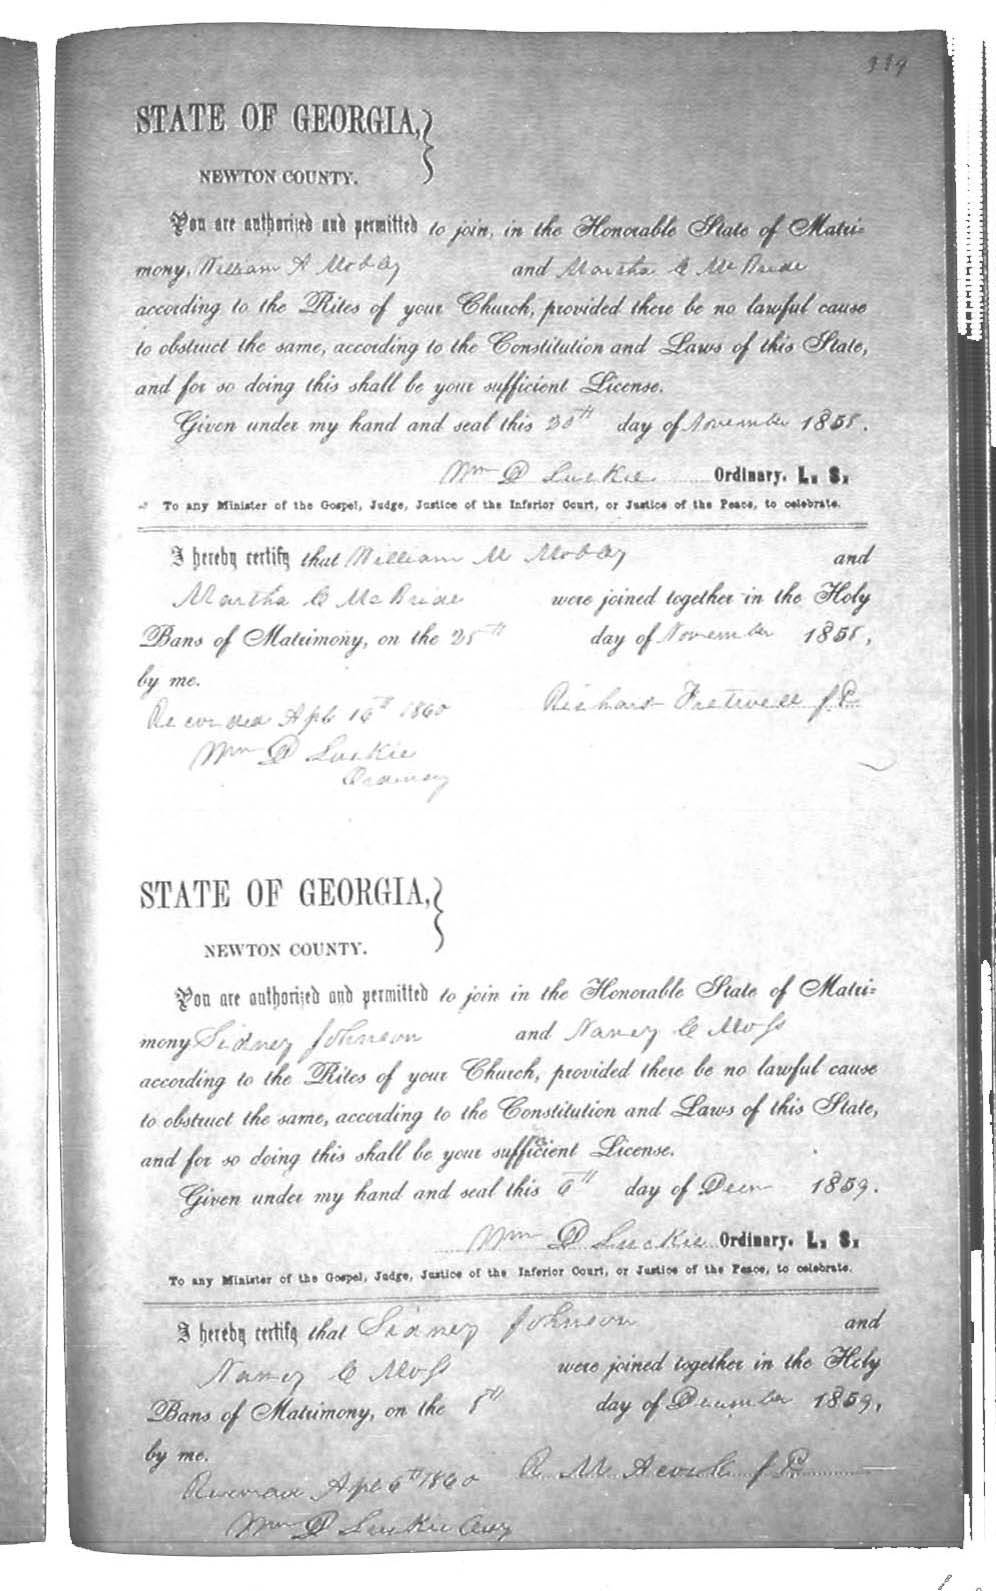 STATE OF GEORGIA,
NEWTON COUNTY.
You are authorized and permitted to join, in the Honorable State of Matri-
mony, William A Mobley and Martha C McBride
according to the Rites of your Church, provided there be no lawful cause
to obstruct the same, according to the Constitution and Laws of this State,
and for so doing this shall be your sufficient License.
Given under my hand and seal this day of November 1858.
Wm D Luckie Ordinary. L. S.
To any Minister of the Gospel, Judge, Justice of the Inferior Court, or Justice of the Peace, to celebrate.
I hereby certify that William M Mobley and
Martha C McBride were joined together in the Holy
Bans of Matrimony, on the 25th day of November 1858,
by me.
Richard Fretwell J.P.
Recorded Apl 16th 1860
Wm D Luckie
Ordinary
STATE OF GEORGIA,
NEWTON COUNTY.
You are authorized and permitted to join in the Honorable State of Matri-
mony Sidney Johnson and Nancy C Moss
according to the Rites of your Church, provided there be no lawful cause
to obstruct the same, according to the Constitution and Laws of this State,
and for so doing this shall be your sufficient License.
Given under my hand and seal this 6th day of Decm 1859.
Wm D Luckie Ordinary. L. S.
To any Minister of the Gospel, Judge, Justice of the Inferior Court, or Justice of the Peace, to celebrate.
I hereby certify that Sidney Johnson and
Nancy C Moss were joined together in the Holy
Bans of Matrimony, on the 8th day of December 1859,
by me.
R M J.P.
Recorded Apl 6th 1860
Wm D Luckie Ordy